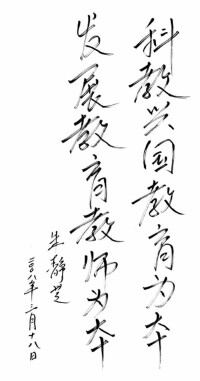 科教兴国教育为本
发展教育教师为本
朱静芝
二〇〇八年三月十八日